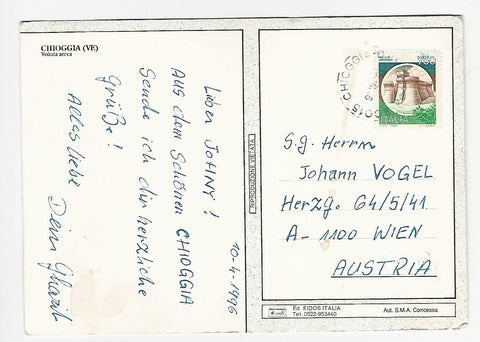 CHIOGGIA (VE)
Veduta aerea
10-4-1996
Lieber JOHNY!
Aus dem Schönen CHIOGGIA
Sende ich dir herzliche
Grüße!
Alles liebe
Dein
RIPRODUZIONE VIETATA
CHIOGGIA
750
ITALIA
S.g. Herrn
Johann VOGEL
Herzg. 64/5/41
A-1100 WIEN
AUSTRIA
Ed. EIDOS ITALIA
Tel. 0522-953440
Aut. S.M.A. Concessa